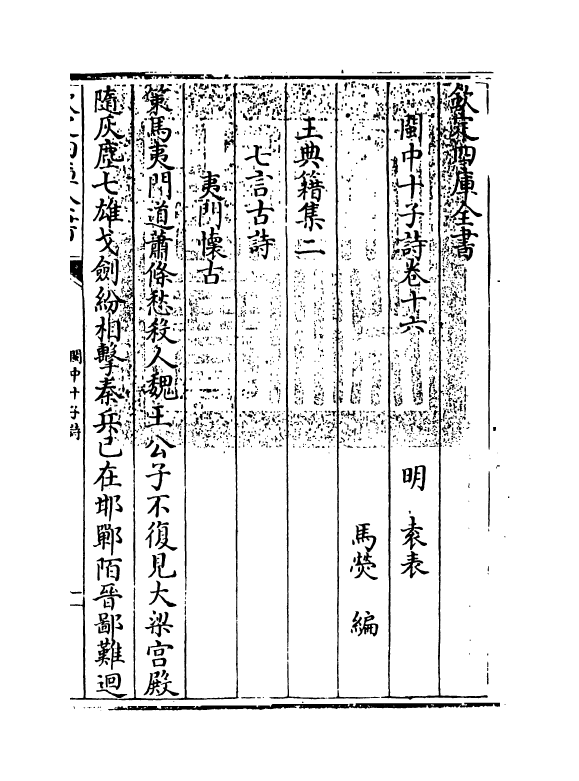 欽定四庫全書
閩中十子詩卷十六
明 袁表
馬熒 編
王典籍集二
七言古詩
夷門懷古
策馬夷門道蕭條愁殺人魏王公子不復見大梁宮殿
隨灰塵七雄戈劍紛相擊秦兵已在邯鄲陌晉鄙難迴
欽定四庫全書
閩中十子詩
一